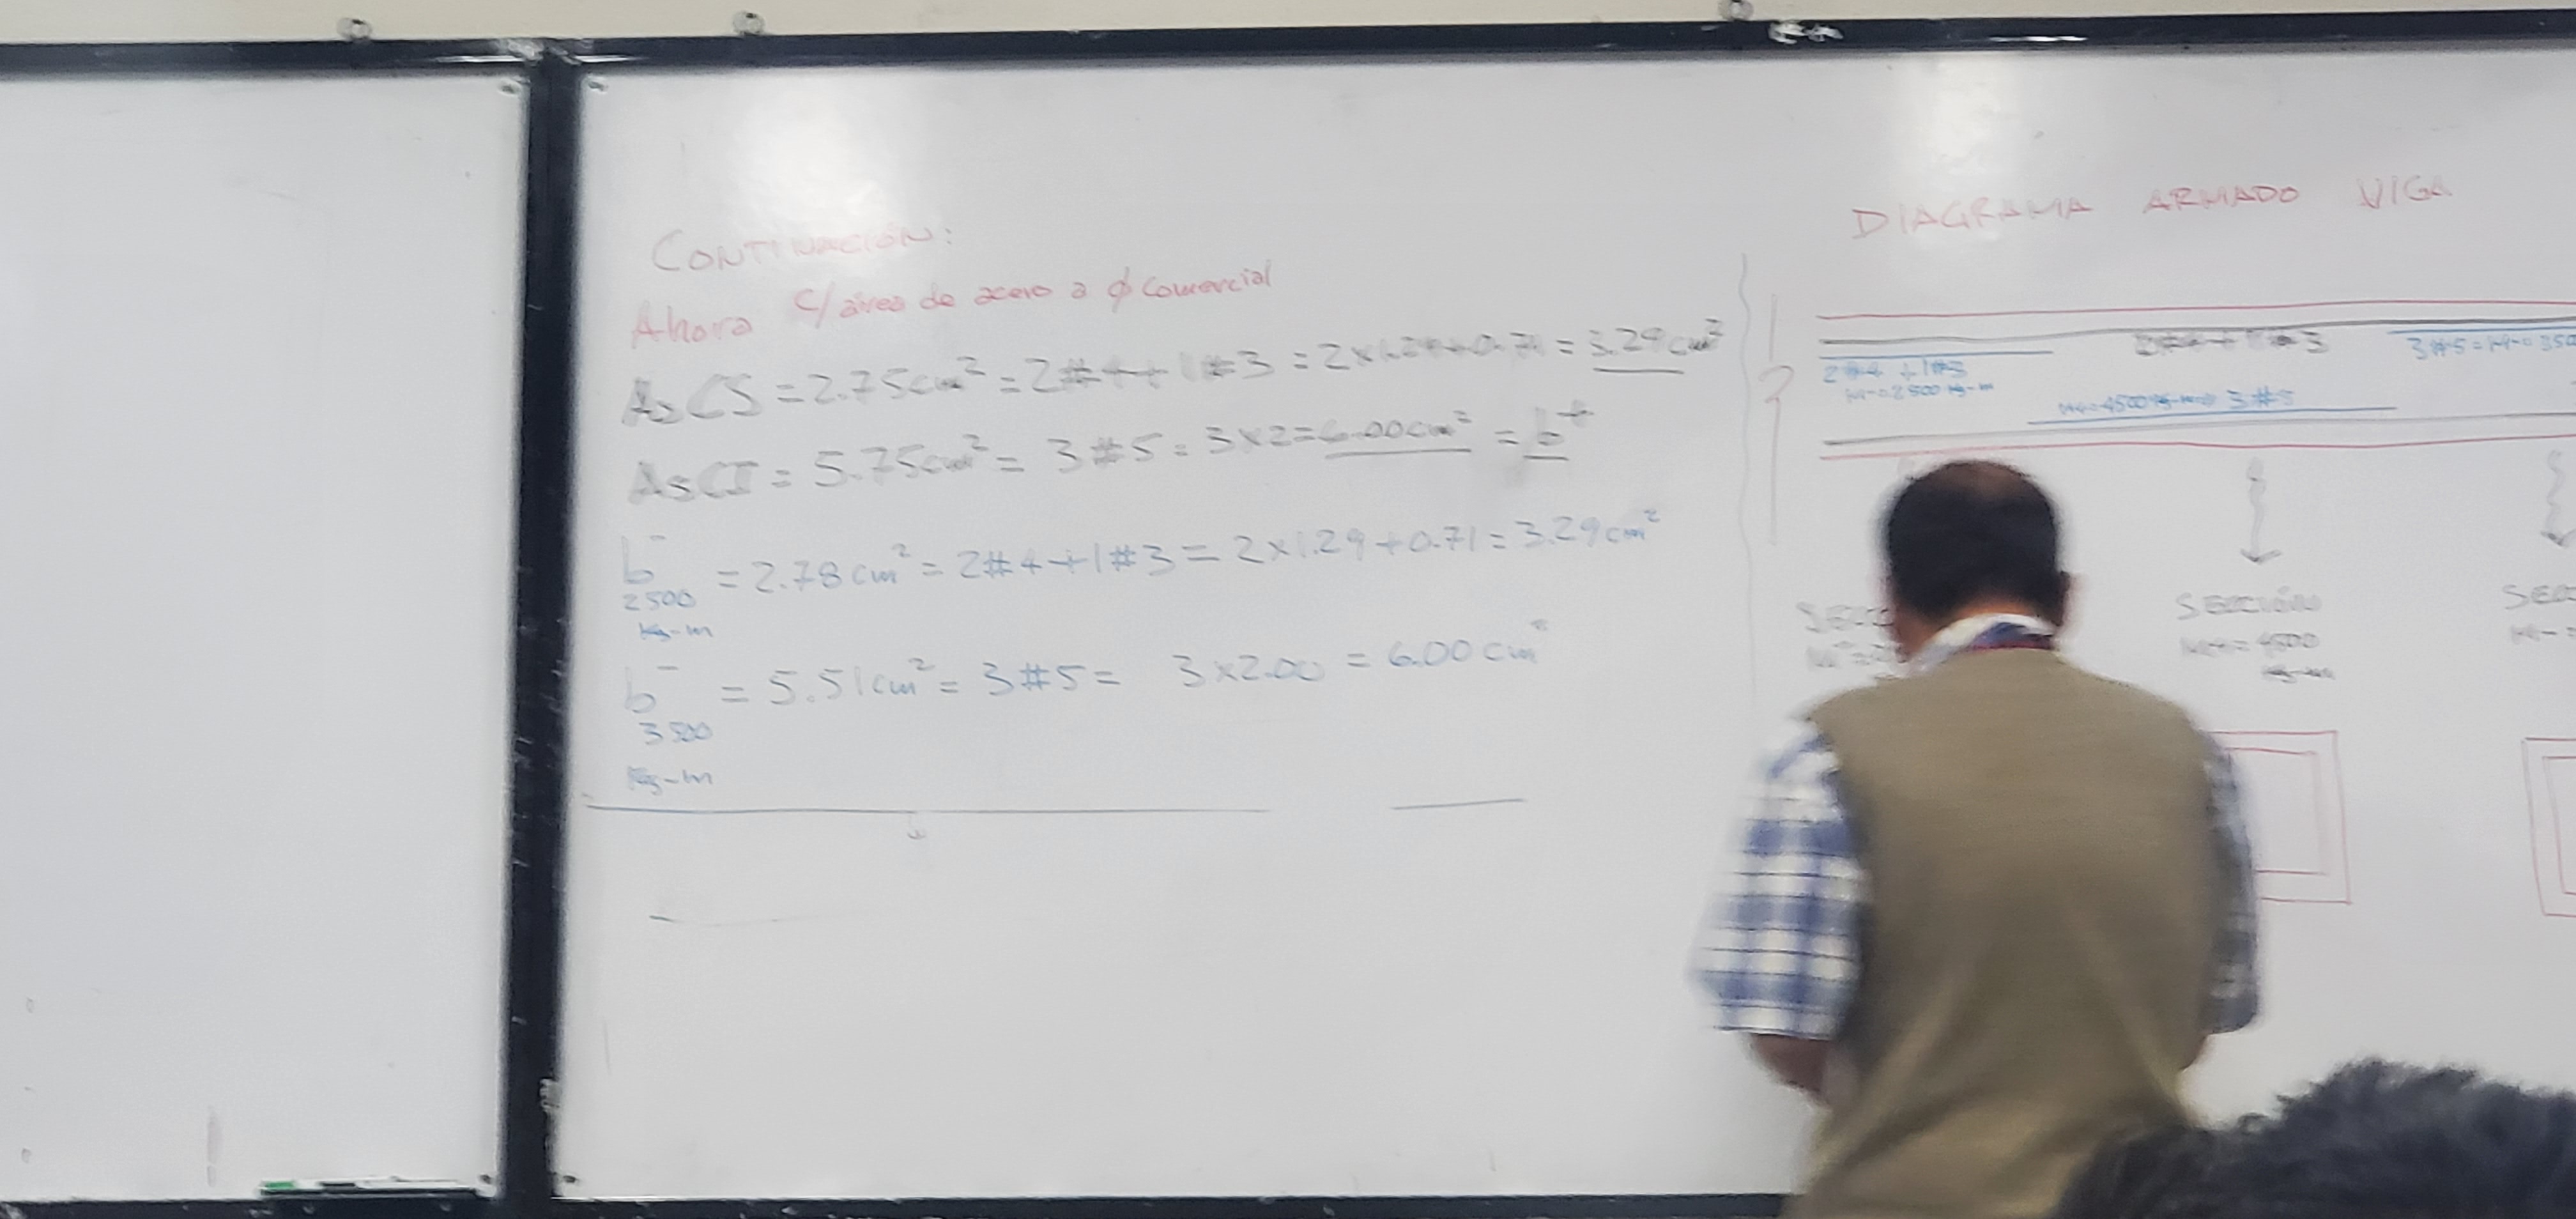 CONTINUACIÓN:
Ahora c/área de acero a ϕ comercial
AsCS = 2.75cm² = 2#4+1#3 = 2x1.29+0.71 = 3.29cm²
AsCI = 5.75cm² = 3#5 = 3x2=6.00cm² = b⁺
b⁻ = 2.78cm² = 2#4+1#3 = 2x1.29+0.71 = 3.29cm²
2500
Kg-m
b⁻ = 5.51cm² = 3#5 = 3x2.00 = 6.00cm²
3500
Kg-m
DIAGRAMA ARMADO VIGA
2#4+1#3
3#5=M-=350
2#4 + 1#3
M-=2500 Kg-m
M+=4500Kg-m 3#5
SECC
SECCIÓN
M+= 4500
Kg-m
SECC
M-=